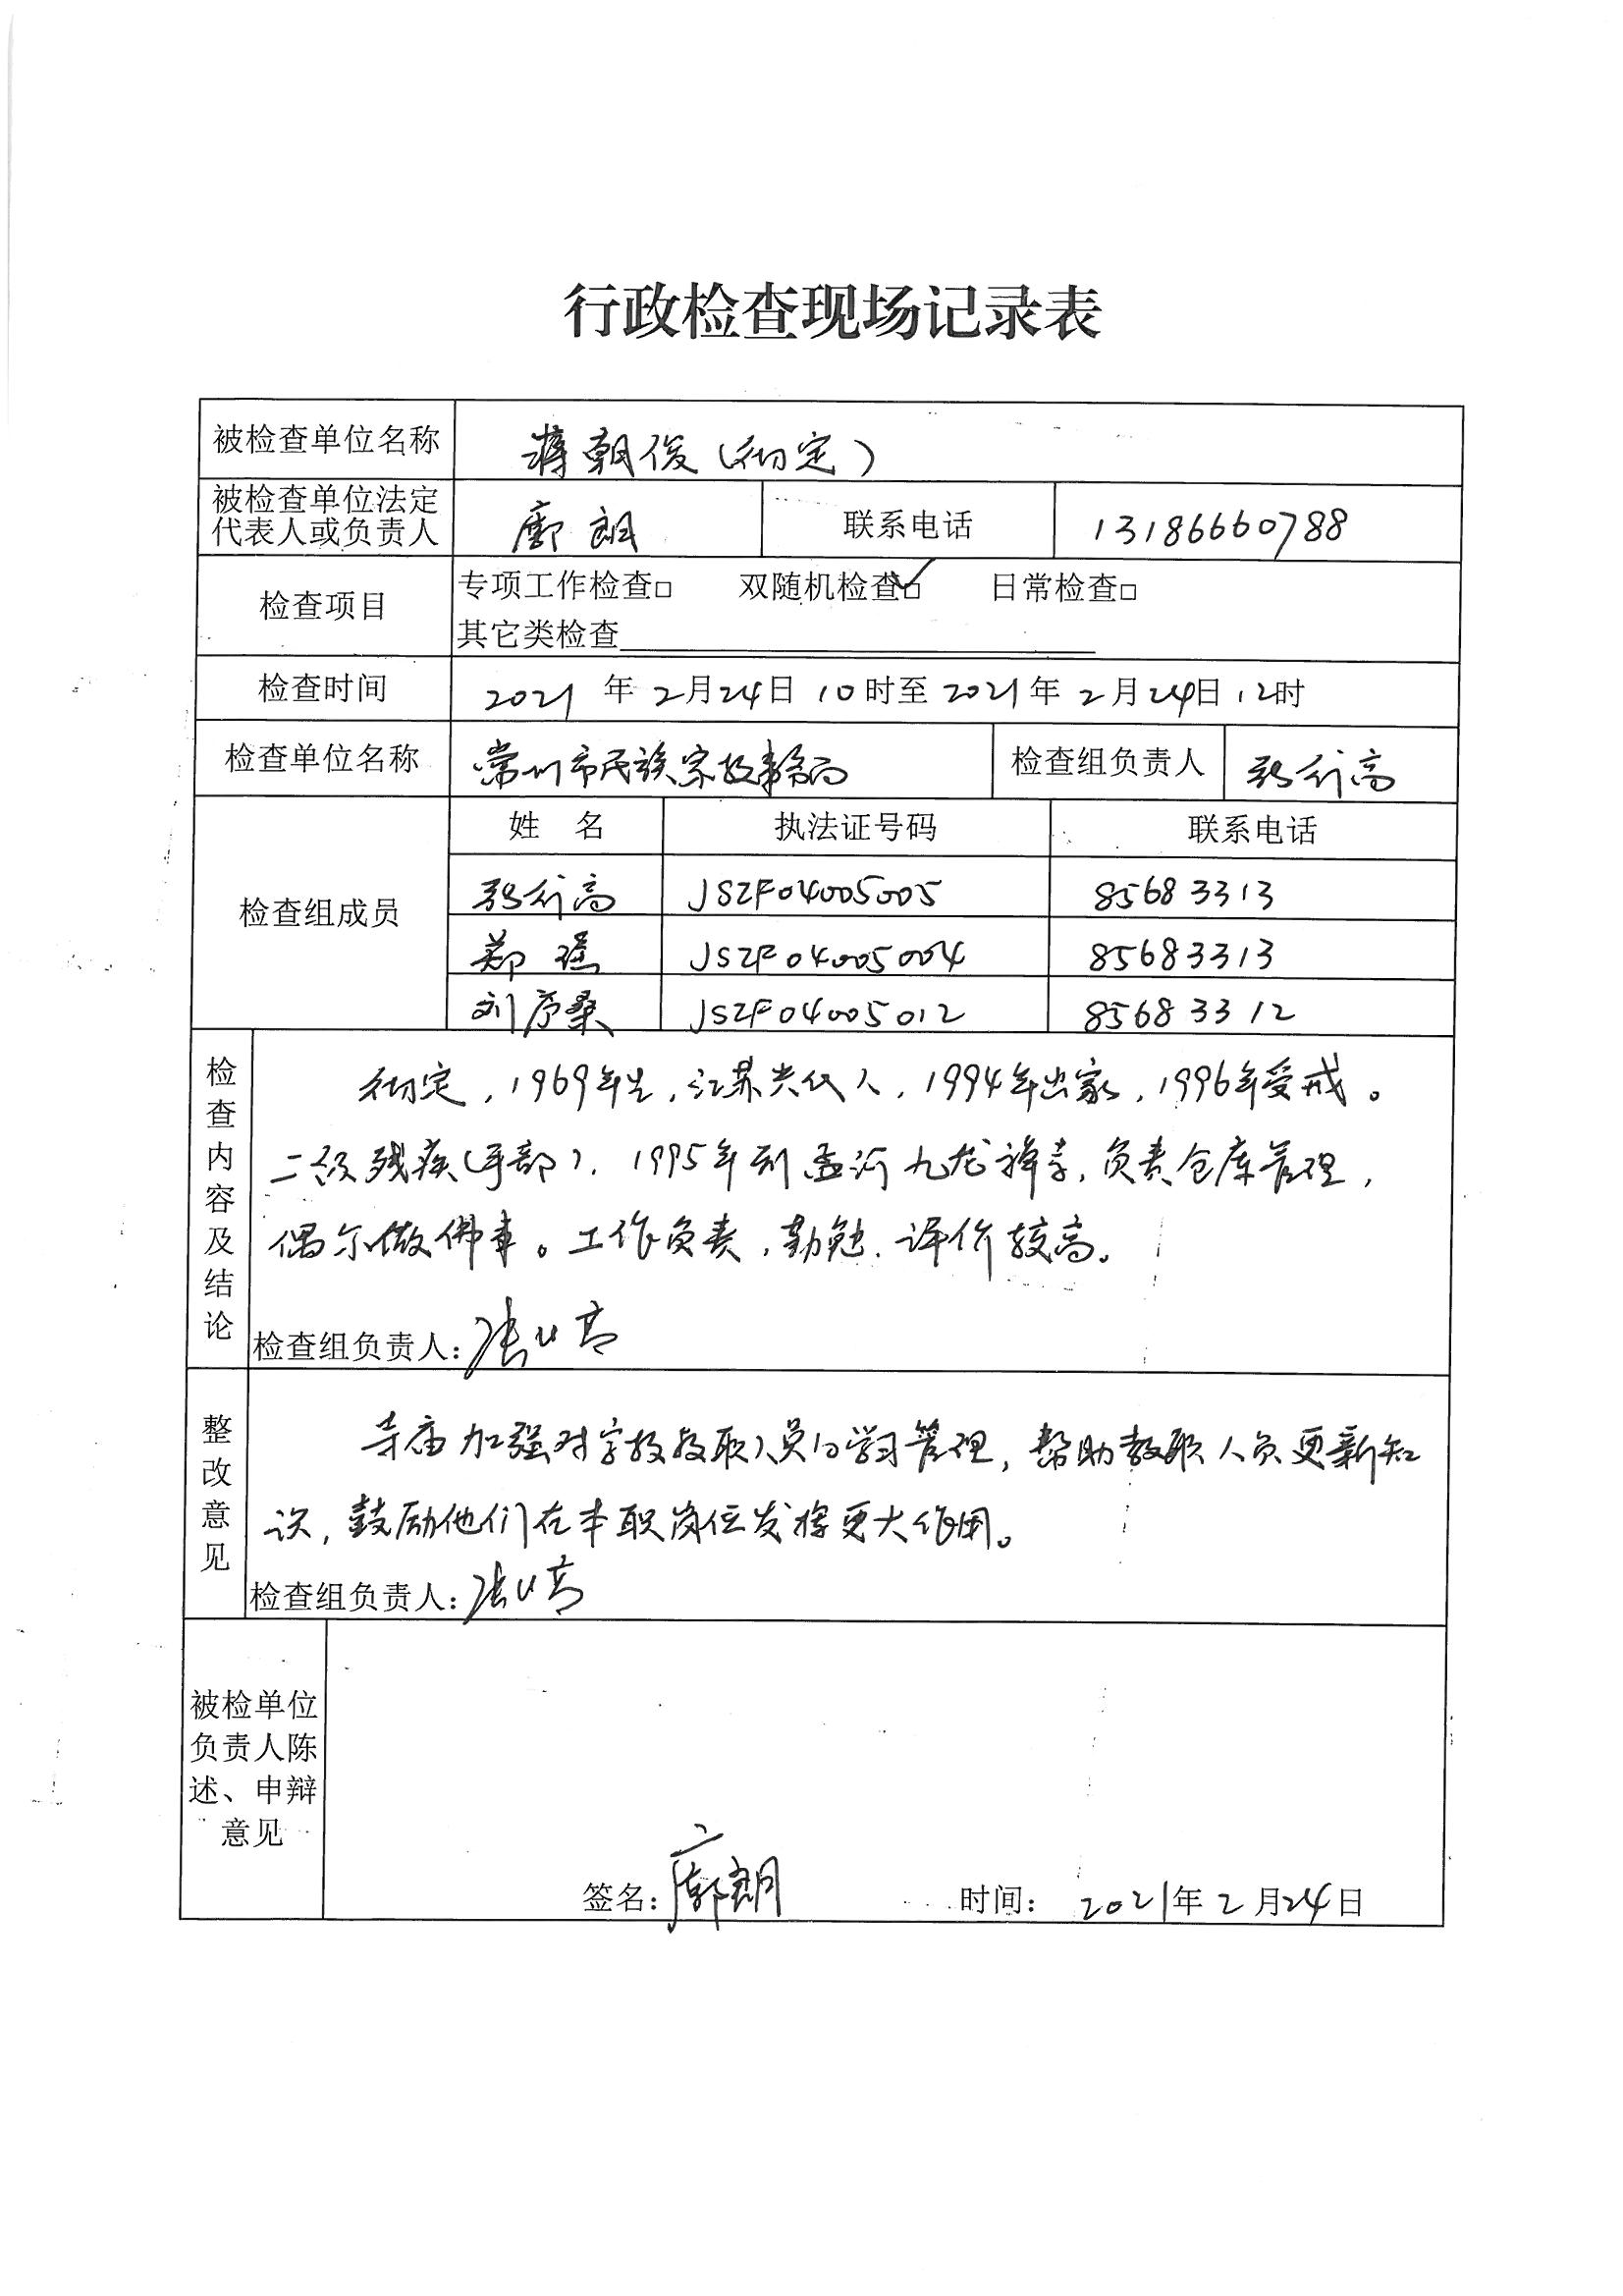 行政检查现场记录表
被检查单位名称 蒋朝俊（彻定）
被检查单位法定
代表人或负责人 廓朗 联系电话 13186660788
检查项目 专项工作检查□ 双随机检查□✓ 日常检查□
其它类检查
检查时间 2021年2月24日10时至2021年2月24日12时
检查单位名称 常州市民族宗教事务局 检查组负责人 张行高
检查组成员 姓 名 执法证号码 联系电话
张行高 JSZF04005005 85683313
郑瑾 JSZF04005004 85683313
刘序桑 JSZF04005012 85683312
检查内容及结论
彻定，1969年生，江苏兴化人，1994年出家，1996年受戒。
二级残疾（手部），1995年到孟河九龙禅寺，负责仓库管理，
偶尔做佛事。工作负责，勤勉，评价较高。
检查组负责人：张行高
整改意见
寺庙加强对宗教教职人员的学习管理，帮助教职人员更新知
识，鼓励他们在本职岗位发挥更大作用。
检查组负责人：张行高
被检单位
负责人陈
述、申辩
意见
签名：廓朗 时间：2021年2月24日